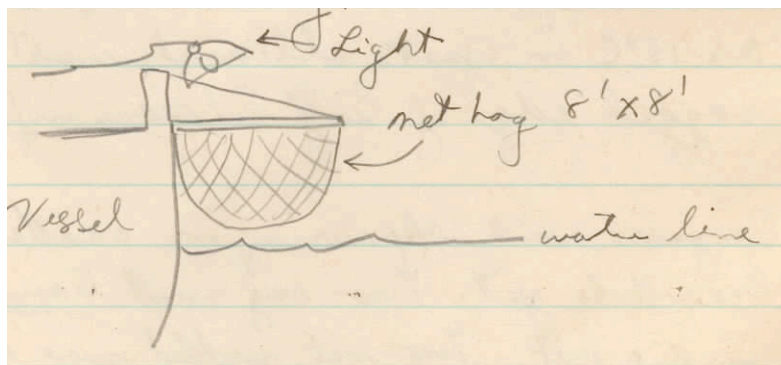 Light
net bag 8' x 8'
Vessel
water line